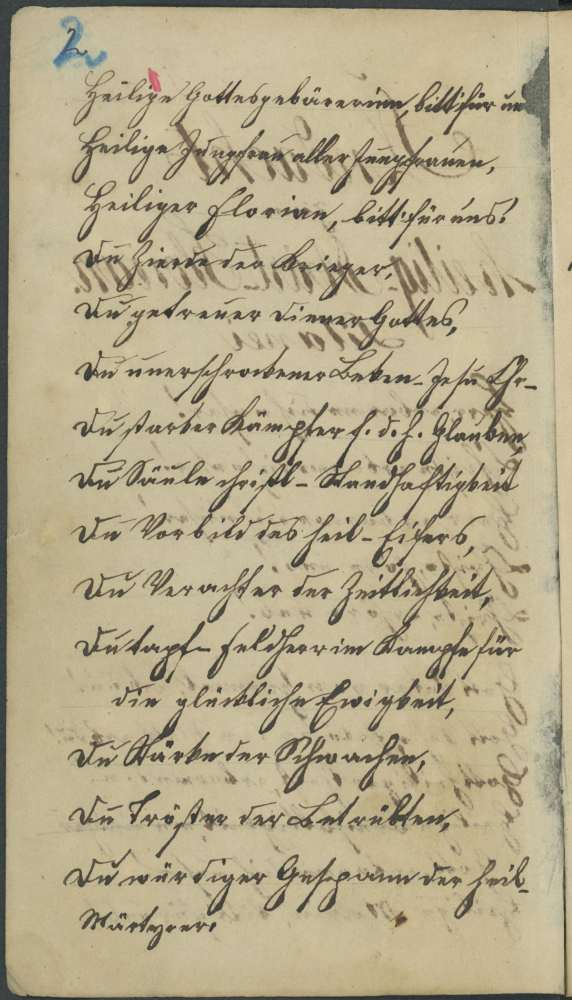 2
Heilige Gottesgebärerinn, bitt für uns
Heilige Jungfrau aller Jungfrauen,
Heiliger Florian, bitt für uns.
Du Zierde der Krieger,
Du getreuer Diener Gottes,
Du unerschrockener Beken- Jesu Chr-
Du starker Kämpfer f. d. h. Glauben,
Du Säule christl- Standhaftigkeit
Du Vorbild des heil- Eifers,
Du Verachter der Zeitlichkeit,
Du tapf- Feldherr im Kampfe für
die glückliche Ewigkeit,
Du Stärke der Schwachen,
Du Tröster der Betrübten,
Du würdiger Gespann der heil-
Märtyrer.